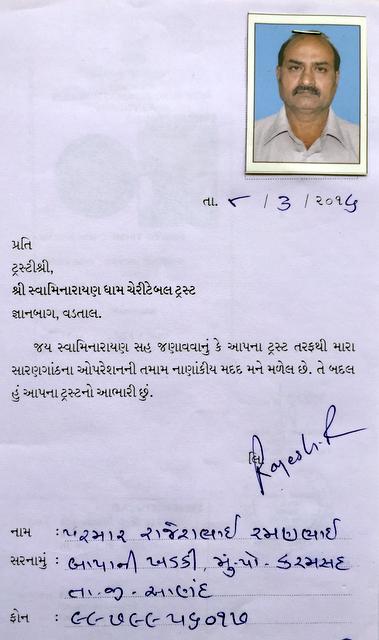 તા. ૮ / 3 / ૨૦૧૬
પ્રતિ
ટ્રસ્ટીશ્રી,
શ્રી સ્વામિનારાયણ ધામ ચેરીટેબલ ટ્રસ્ટ
જ્ઞાનબાગ, વડતાલ.
જય સ્વામિનારાયણ સહ જણાવવાનું કે આપના ટ્રસ્ટ તરફથી મારા
સારણગાંઠના ઓપરેશનની તમામ નાણાંકીય મદદ મને મળેલ છે. તે બદલ
હું આપના ટ્રસ્ટનો આભારી છું.
લિ.
Rajesh.R
નામ : પરમાર રાજેશભાઈ રમણભાઈ
સરનામું : બાપાની ખડકી, મું.પો. કરમસદ
તા.જી. આણંદ
ફોન : ૯૯૭૯૯૫૬૦૧૭